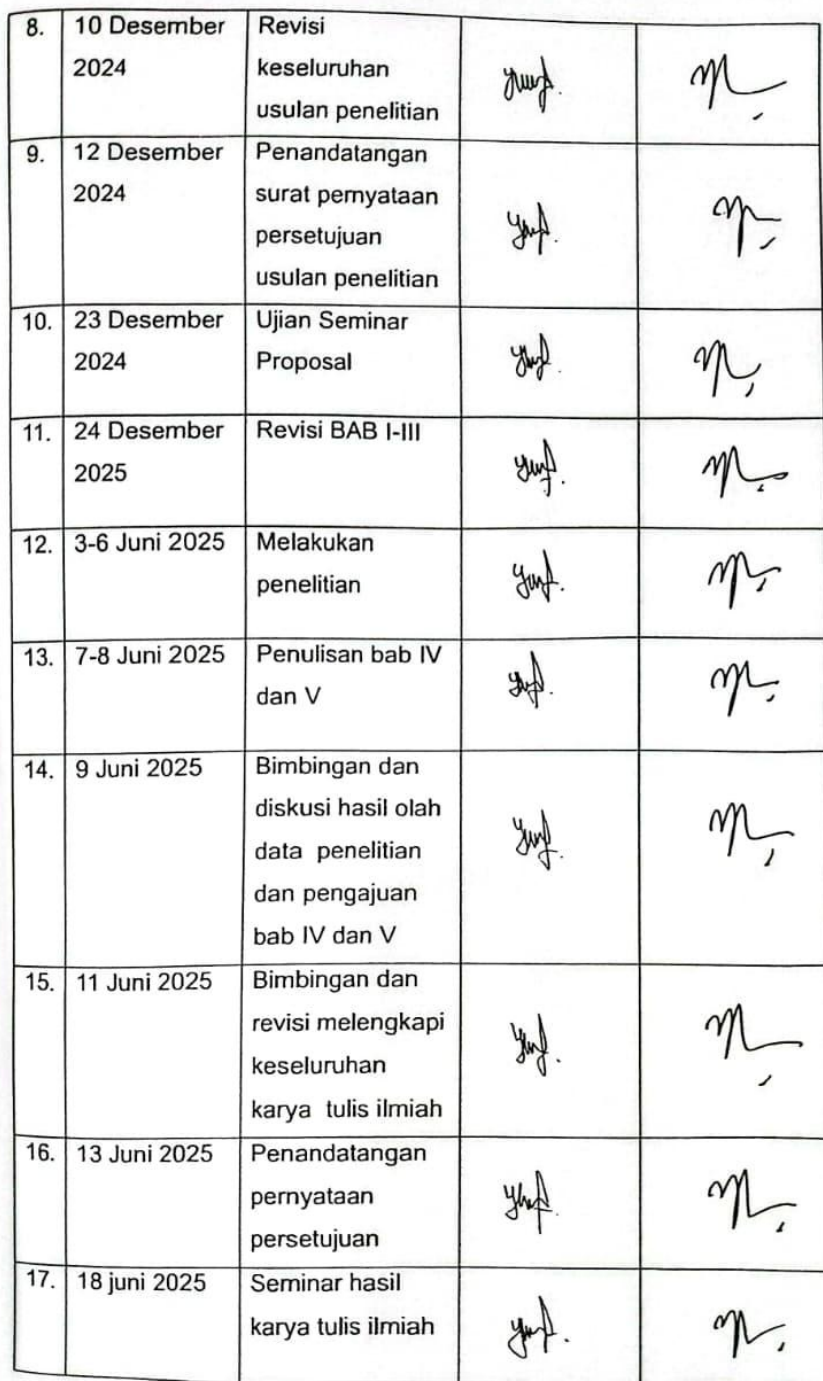 8. 10 Desember Revisi
2024 keseluruhan
usulan penelitian
9. 12 Desember Penandatangan
2024 surat pernyataan
persetujuan
usulan penelitian
10. 23 Desember Ujian Seminar
2024 Proposal
11. 24 Desember Revisi BAB I-III
2025
12. 3-6 Juni 2025 Melakukan
penelitian
13. 7-8 Juni 2025 Penulisan bab IV
dan V
14. 9 Juni 2025 Bimbingan dan
diskusi hasil olah
data penelitian
dan pengajuan
bab IV dan V
15. 11 Juni 2025 Bimbingan dan
revisi melengkapi
keseluruhan
karya tulis ilmiah
16. 13 Juni 2025 Penandatangan
pernyataan
persetujuan
17. 18 juni 2025 Seminar hasil
karya tulis ilmiah